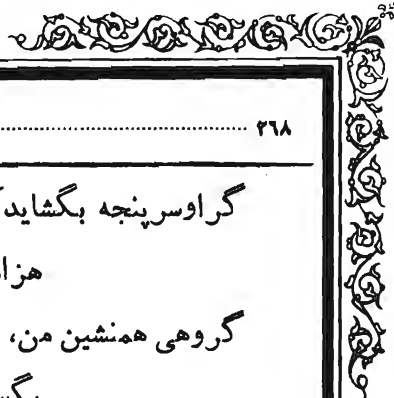 ۲۶۸ ........................................
گر اوسرپنجه بگشاید
گروهی همنشین من،